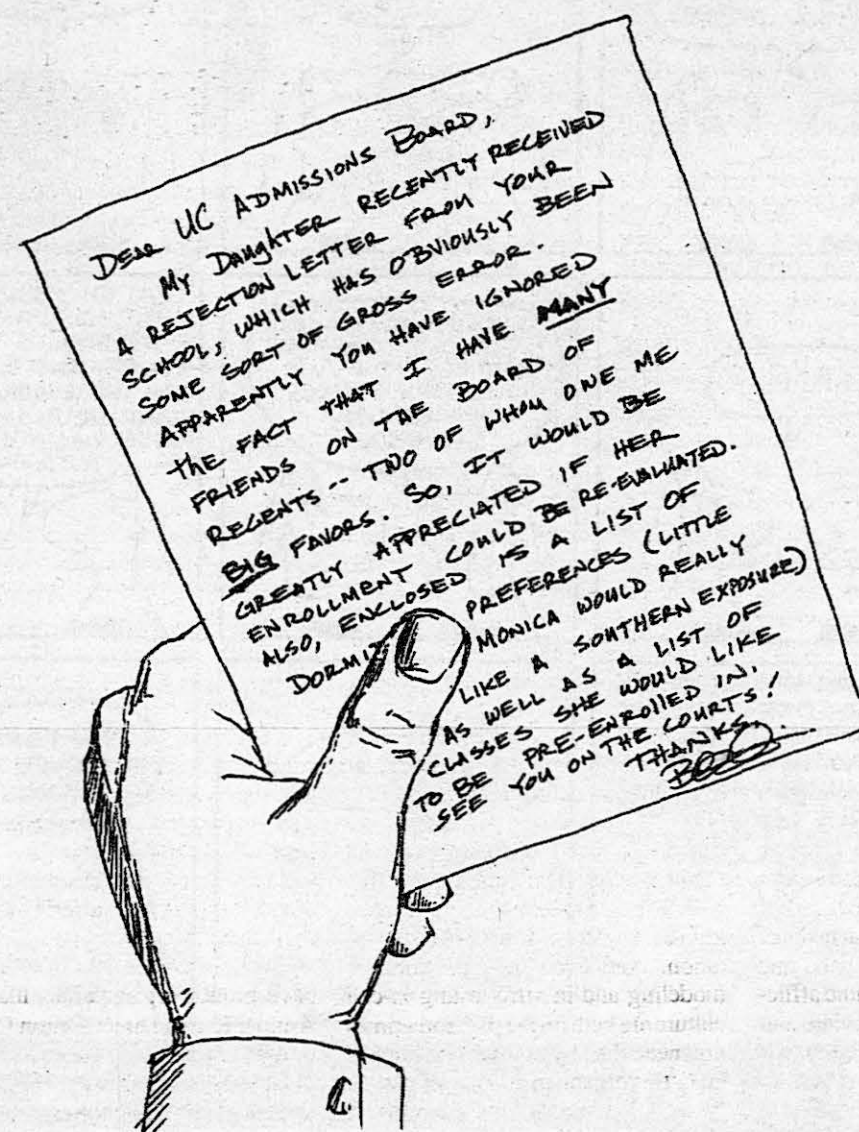 DEAR UC ADMISSIONS BOARD,
MY DAUGHTER RECENTLY RECEIVED
A REJECTION LETTER FROM YOUR
SCHOOL, WHICH HAS OBVIOUSLY BEEN
SOME SORT OF GROSS ERROR.
APPARENTLY YOU HAVE IGNORED
THE FACT THAT I HAVE MANY
FRIENDS ON THE BOARD OF
REGENTS -- TWO OF WHOM ONE ME
BIG FAVORS. SO, IT WOULD BE
GREATLY APPRECIATED IF HER
ENROLLMENT COULD BE RE-EVALUATED.
ALSO, ENCLOSED IS A LIST OF
DORMI PREFERENCES (LITTLE
MONICA WOULD REALLY
LIKE A SOUTHERN EXPOSURE)
AS WELL AS A LIST OF
CLASSES SHE WOULD LIKE
TO BE PRE-ENROLLED IN.
SEE YOU ON THE COURTS!
THANKS,